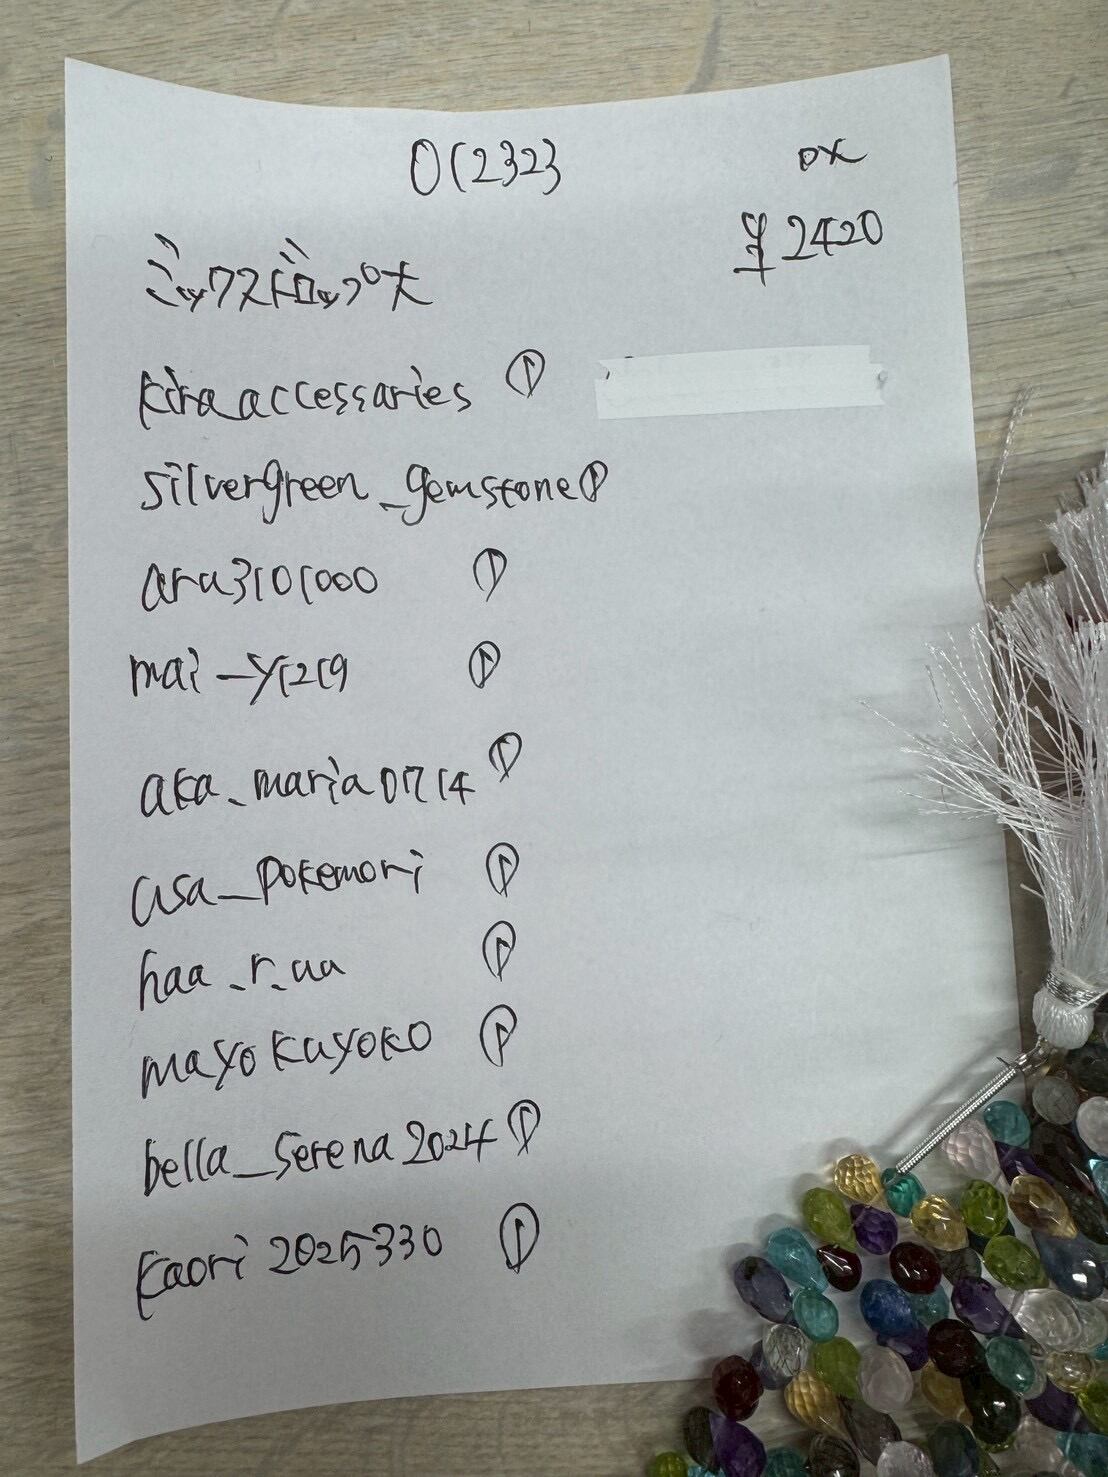 01232}
ox
¥2420
ミックスドロップ大
kiraaccessaries ①
silvergreen_gemstone①
aru3101000 ①
mai-y1219 ①
aka_maria0714 ①
asa_pokemori ①
haa_r_aa ①
mayokuyoko ①
bella_serena2024 ①
kaori2025330 ①